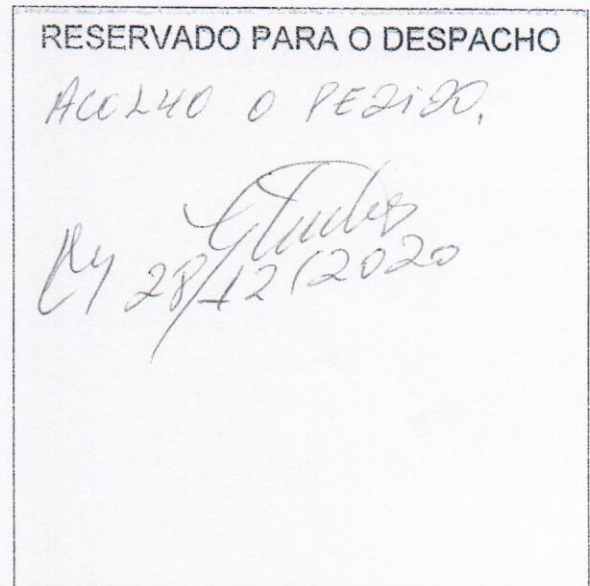 RESERVADO PARA O DESPACHO
ACOLHO O PEDIDO.
28/12/2020